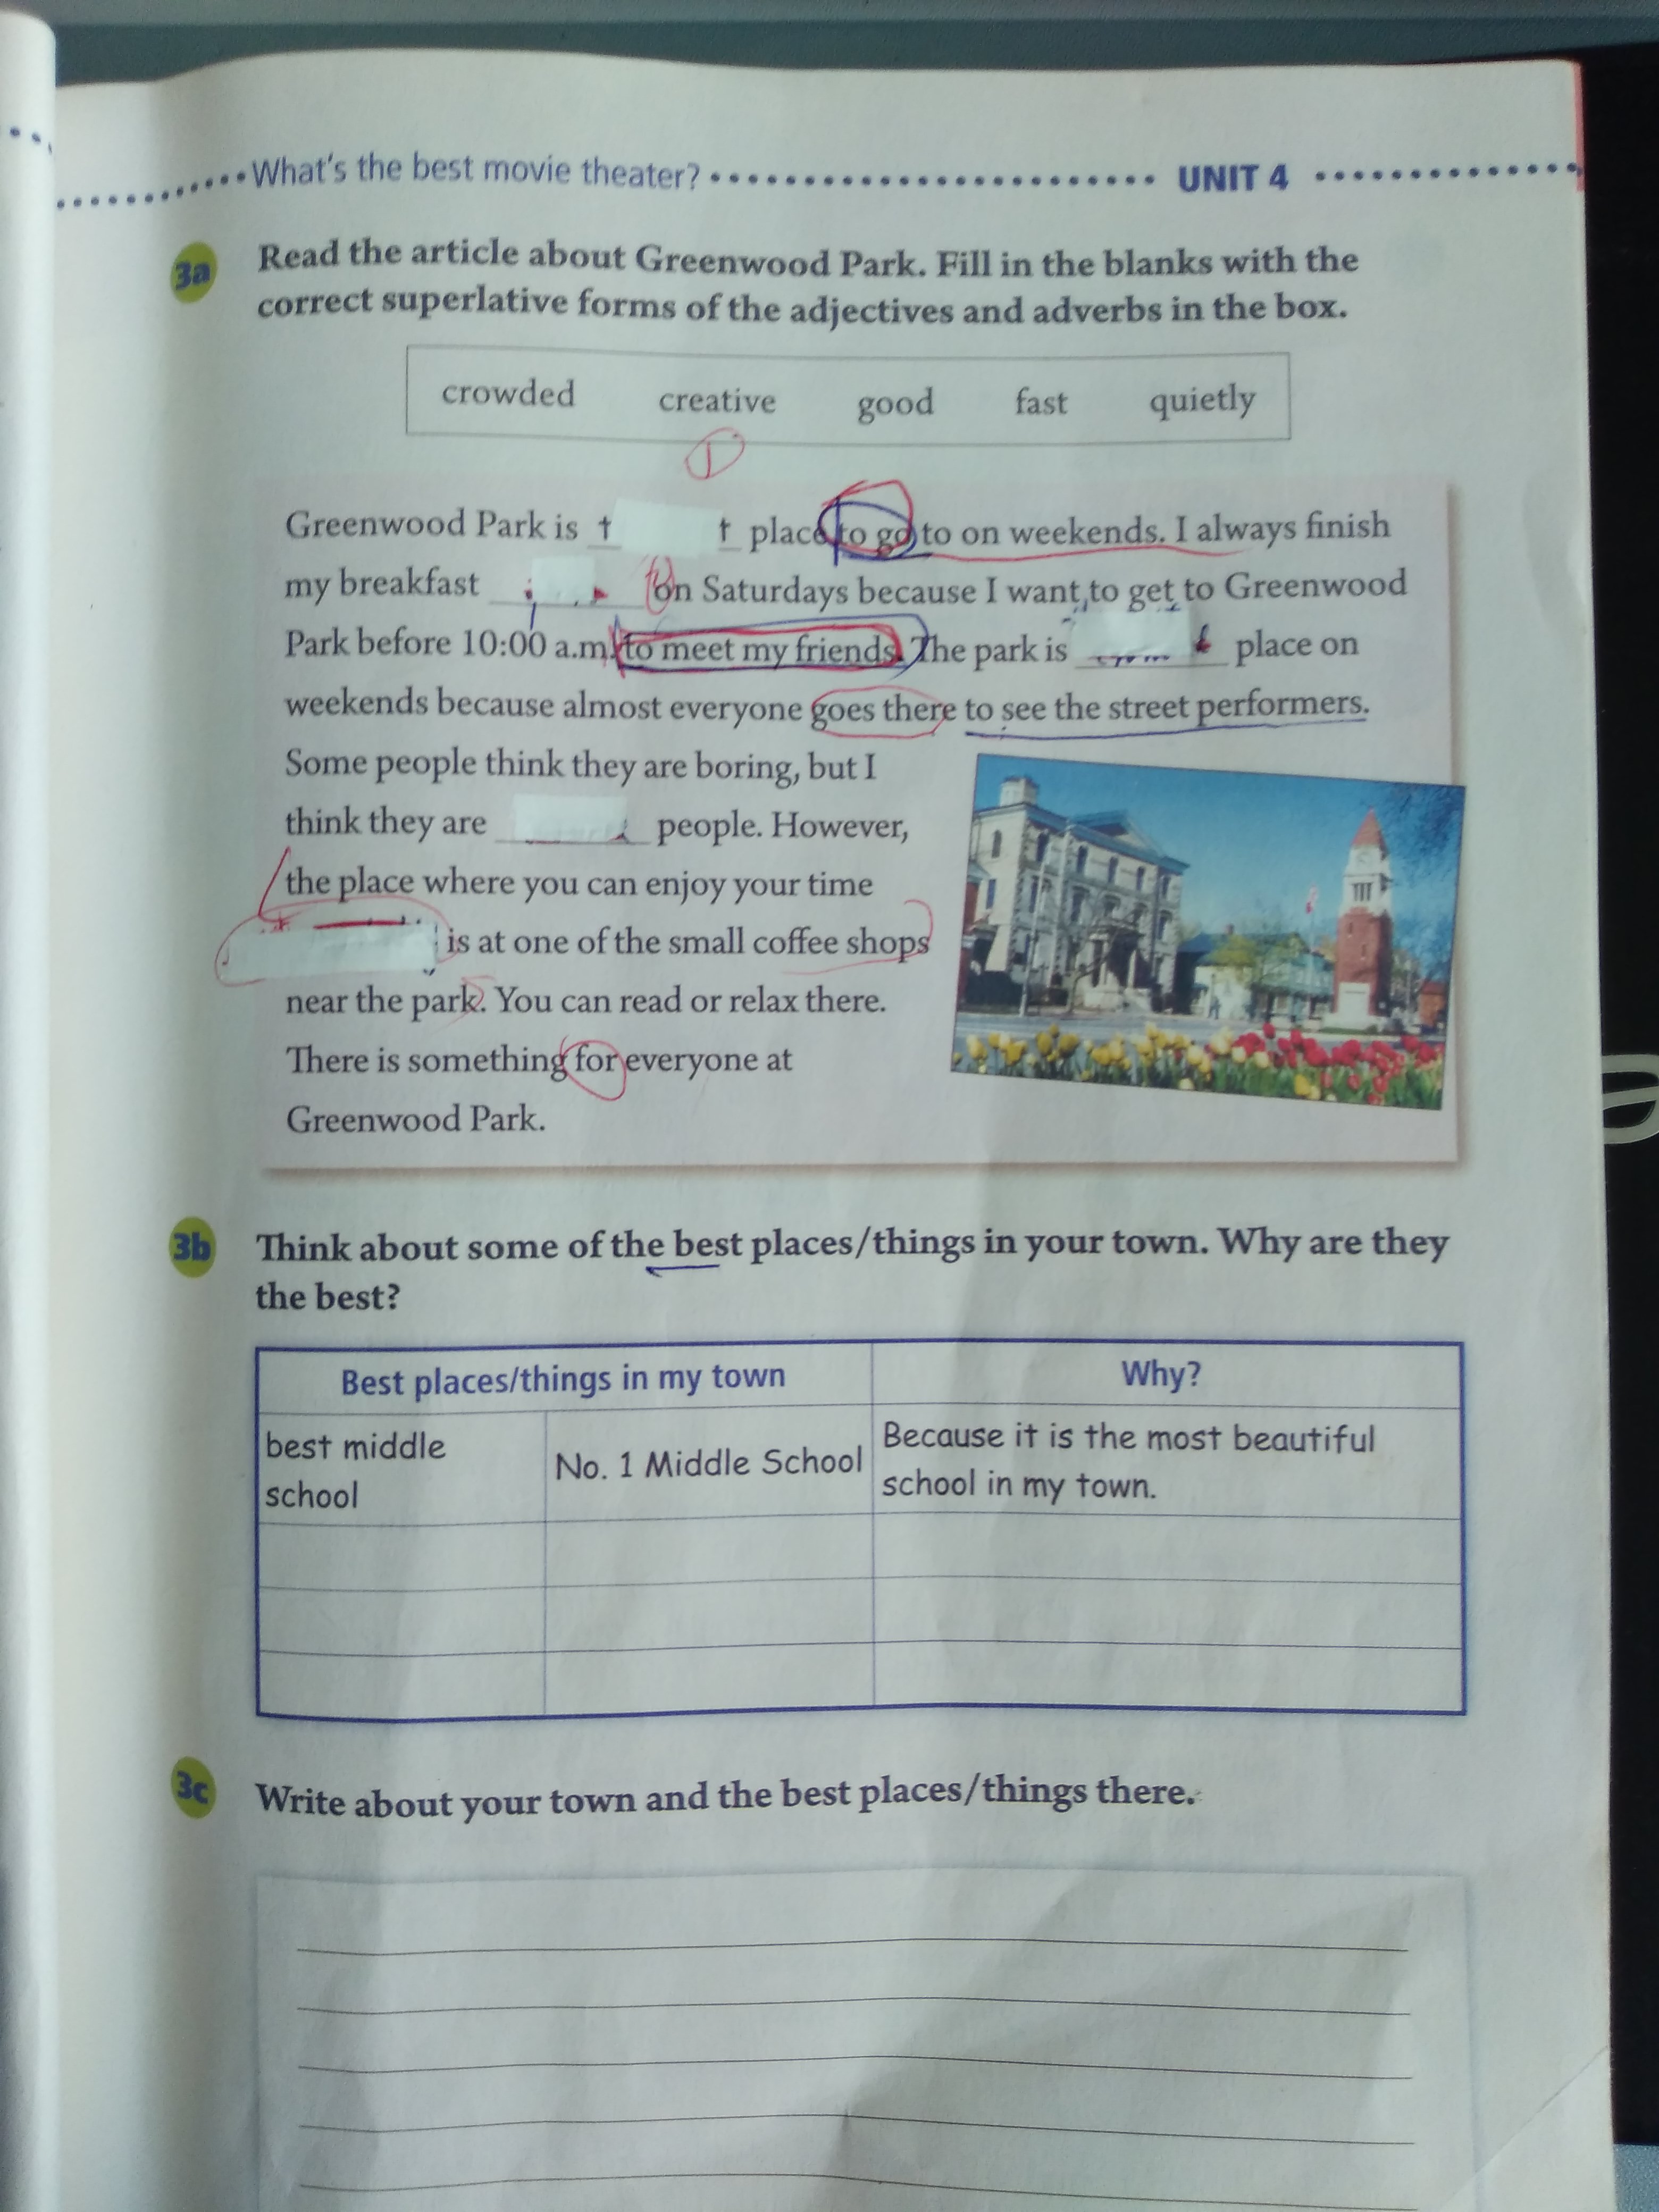 What's the best movie theater? UNIT 4
3a Read the article about Greenwood Park. Fill in the blanks with the
correct superlative forms of the adjectives and adverbs in the box.
crowded creative good fast quietly
①
Greenwood Park is t t place to go to on weekends. I always finish
my breakfast on Saturdays because I want to get to Greenwood
Park before 10:00 a.m. to meet my friends. The park is place on
weekends because almost everyone goes there to see the street performers.
Some people think they are boring, but I
think they are people. However,
the place where you can enjoy your time
is at one of the small coffee shops
near the park. You can read or relax there.
There is something for everyone at
Greenwood Park.
3b Think about some of the best places/things in your town. Why are they
the best?
Best places/things in my town Why?
best middle
school
No. 1 Middle School
Because it is the most beautiful
school in my town.
3c Write about your town and the best places/things there.